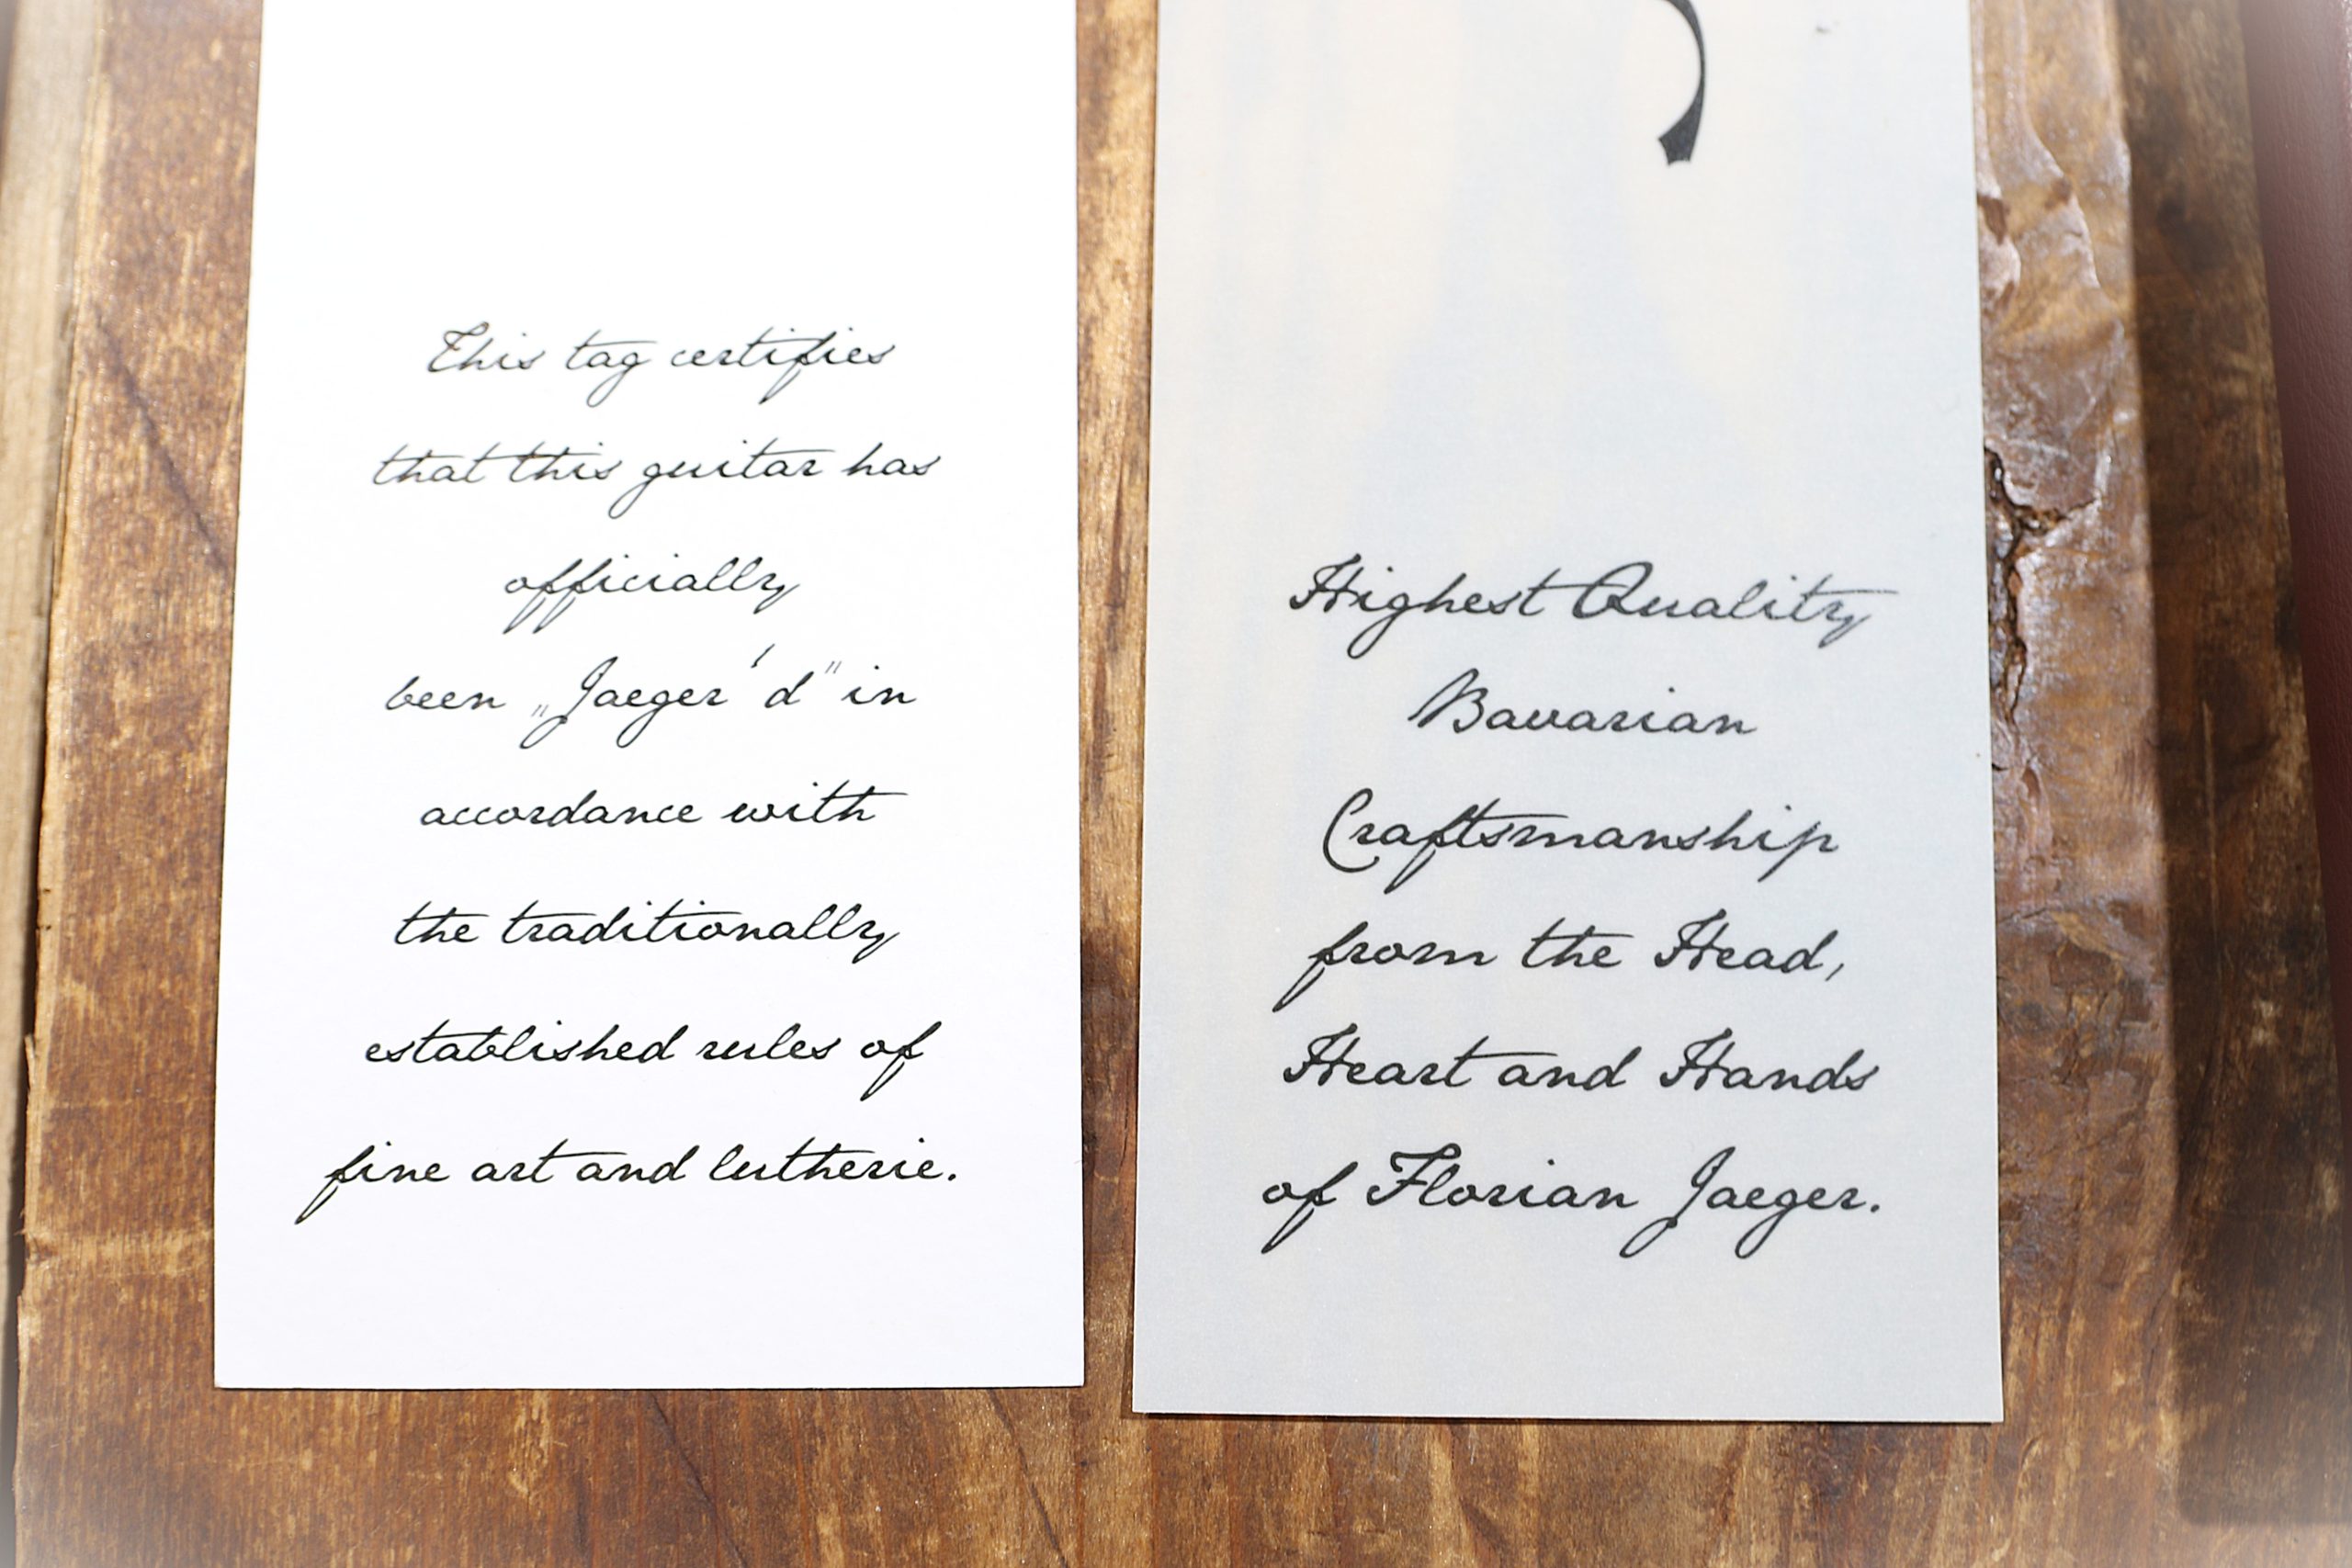 This tag certifies
that this guitar has
officially
been „Jaeger'd" in
accordance with
the traditionally
established rules of
fine art and lutherie.
Highest Quality
Bavarian
Craftsmanship
from the Head,
Heart and Hands
of Florian Jaeger.